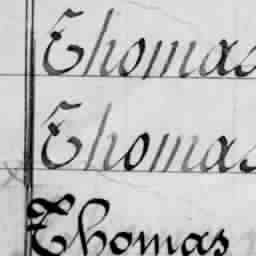 Thomas
Thomas
Thomas